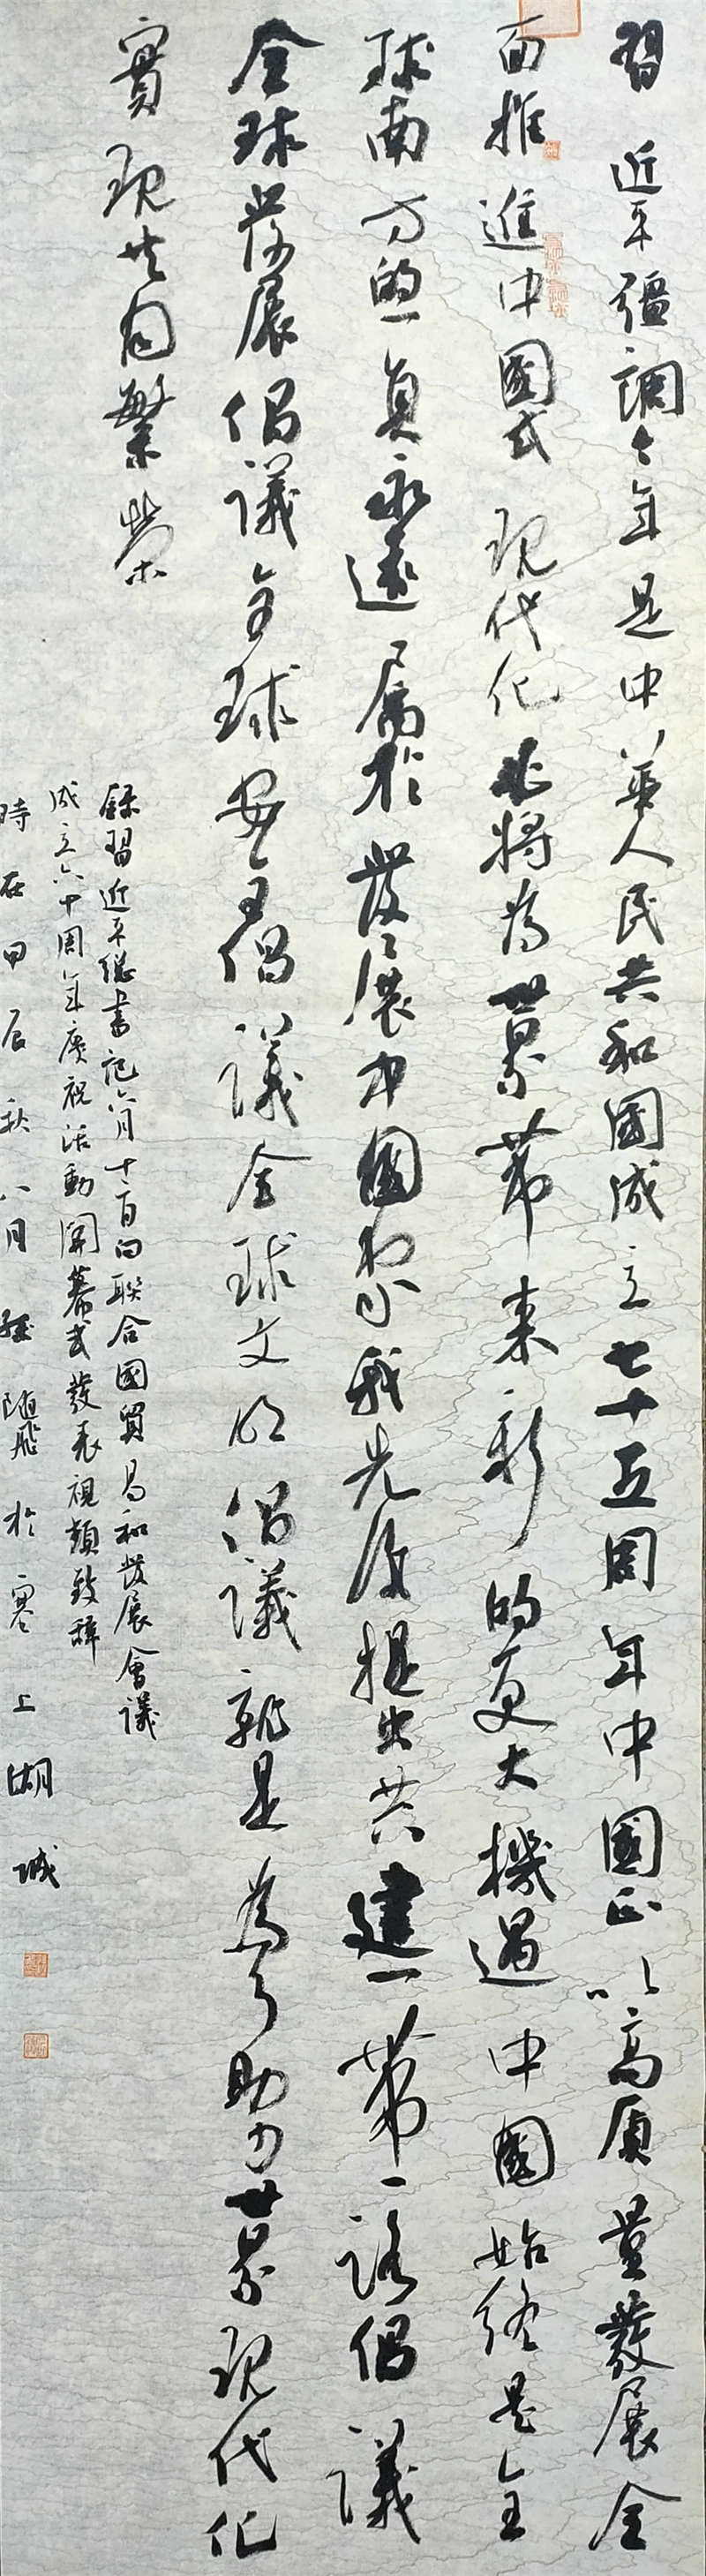 習近平強調今年是中華人民共和國成立七十五周年中國正以高質量發展全
面推進中國式現代化必將為世界帶來新的更大機遇中國始終是全
球南方的一員永遠屬於發展中國家我先後提出共建一帶一路倡議
全球發展倡議全球安全倡議全球文明倡議就是為了助力世界現代化
實現共同繁榮
錄習近平總書記六月十二日向聯合國貿易和發展會議
成立六十周年慶祝活動開幕式發表視頻致辭
時在甲辰秋八月 隨飛於寒上湖城